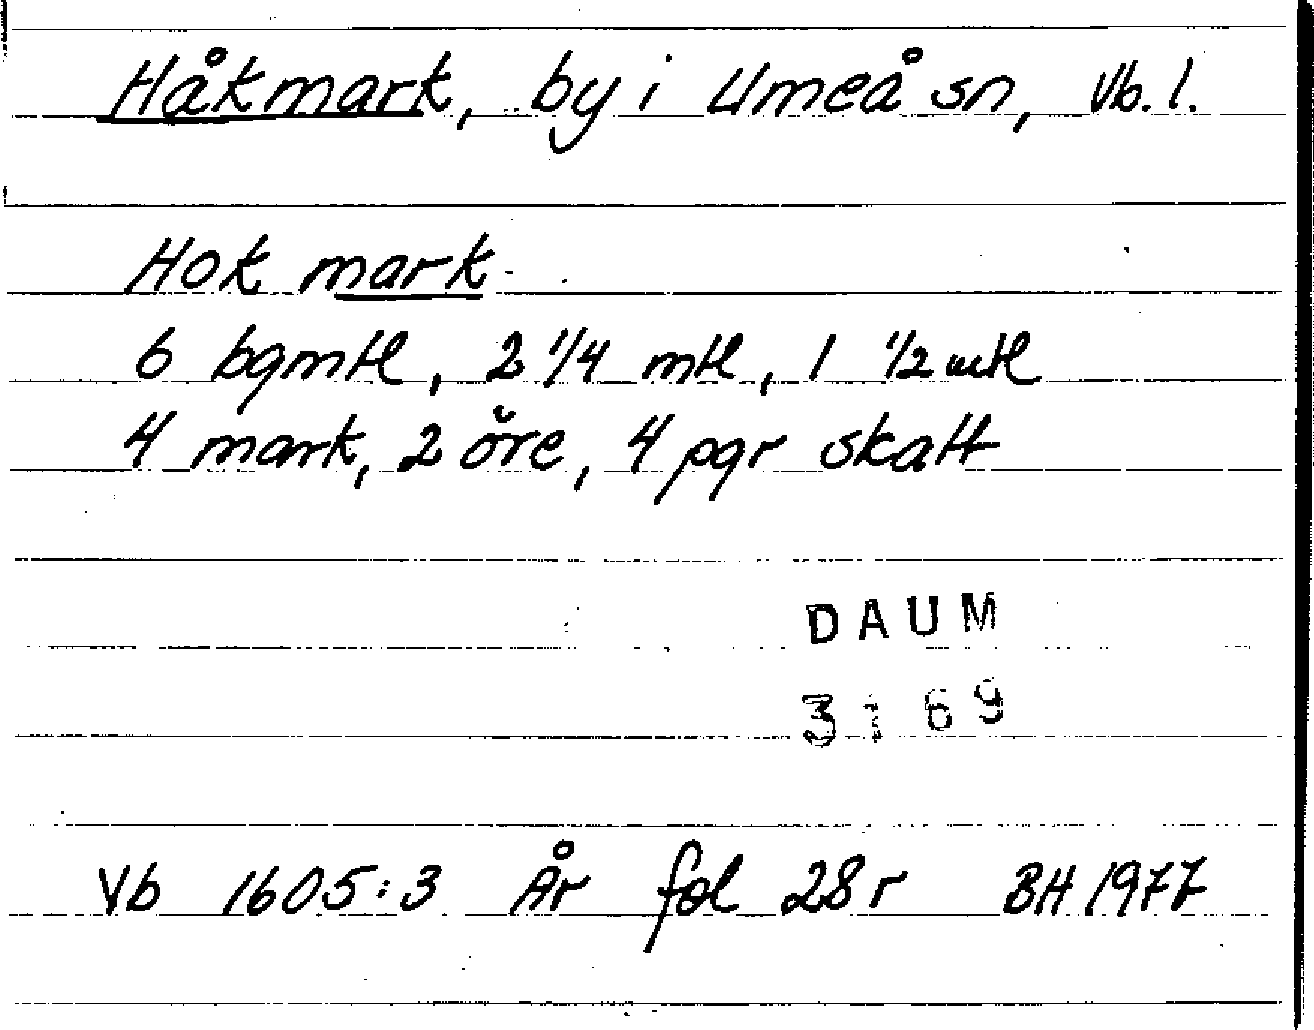 Håkmark, by i Umeå sn, Vb. l.
Hok mark
6 bgmtl, 2 1/4 mtl, 1 1/2 mtl
4 mark, 2 öre, 4 pgr skatt
DAUM
3169
Vb 1605:3 År fol 28 r BH 1977